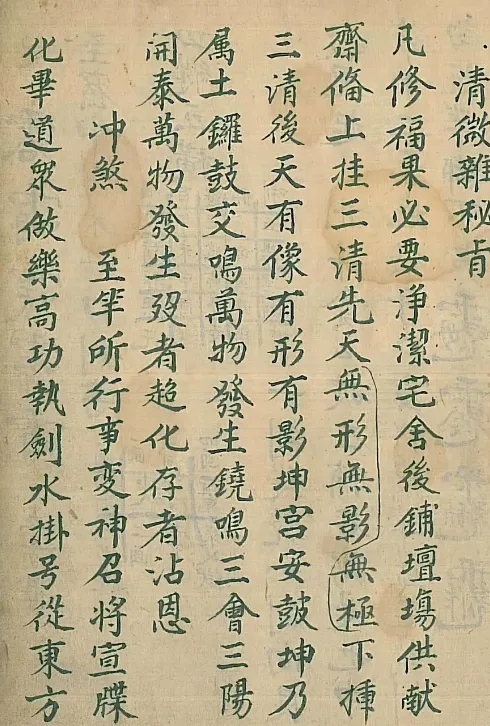 清微雜秘旨
凡修福果必要浄潔宅舍後鋪壇塲供献
齋俻上挂三清先天無形無影無極下挿
三清後天有像有形有影坤宫安鼓坤乃
属土鑼鼓交鳴萬物發生鐃鳴三會三陽
開泰萬物發生歿者超化存者沾恩
冲煞 至筶所行事变神召将宣牒
化畢道眾做樂高功執劍水掛号從東方